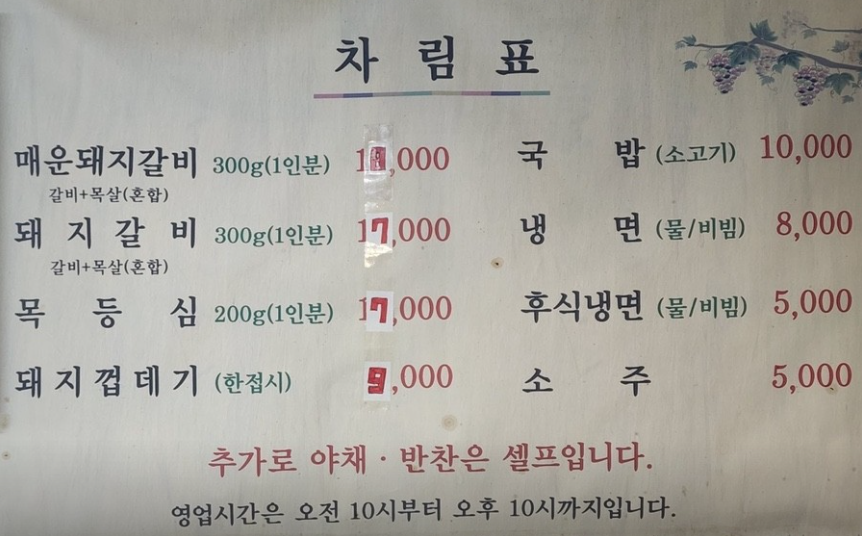 차림표
매운돼지갈비 300g(1인분) 18,000
갈비+목살(혼합)
돼지갈비 300g(1인분) 17,000
갈비+목살(혼합)
목등심 200g(1인분) 17,000
돼지껍데기 (한접시) 9,000
국밥 (소고기) 10,000
냉면 (물/비빔) 8,000
후식냉면 (물/비빔) 5,000
소주 5,000
추가로 야채·반찬은 셀프입니다.
영업시간은 오전 10시부터 오후 10시까지입니다.